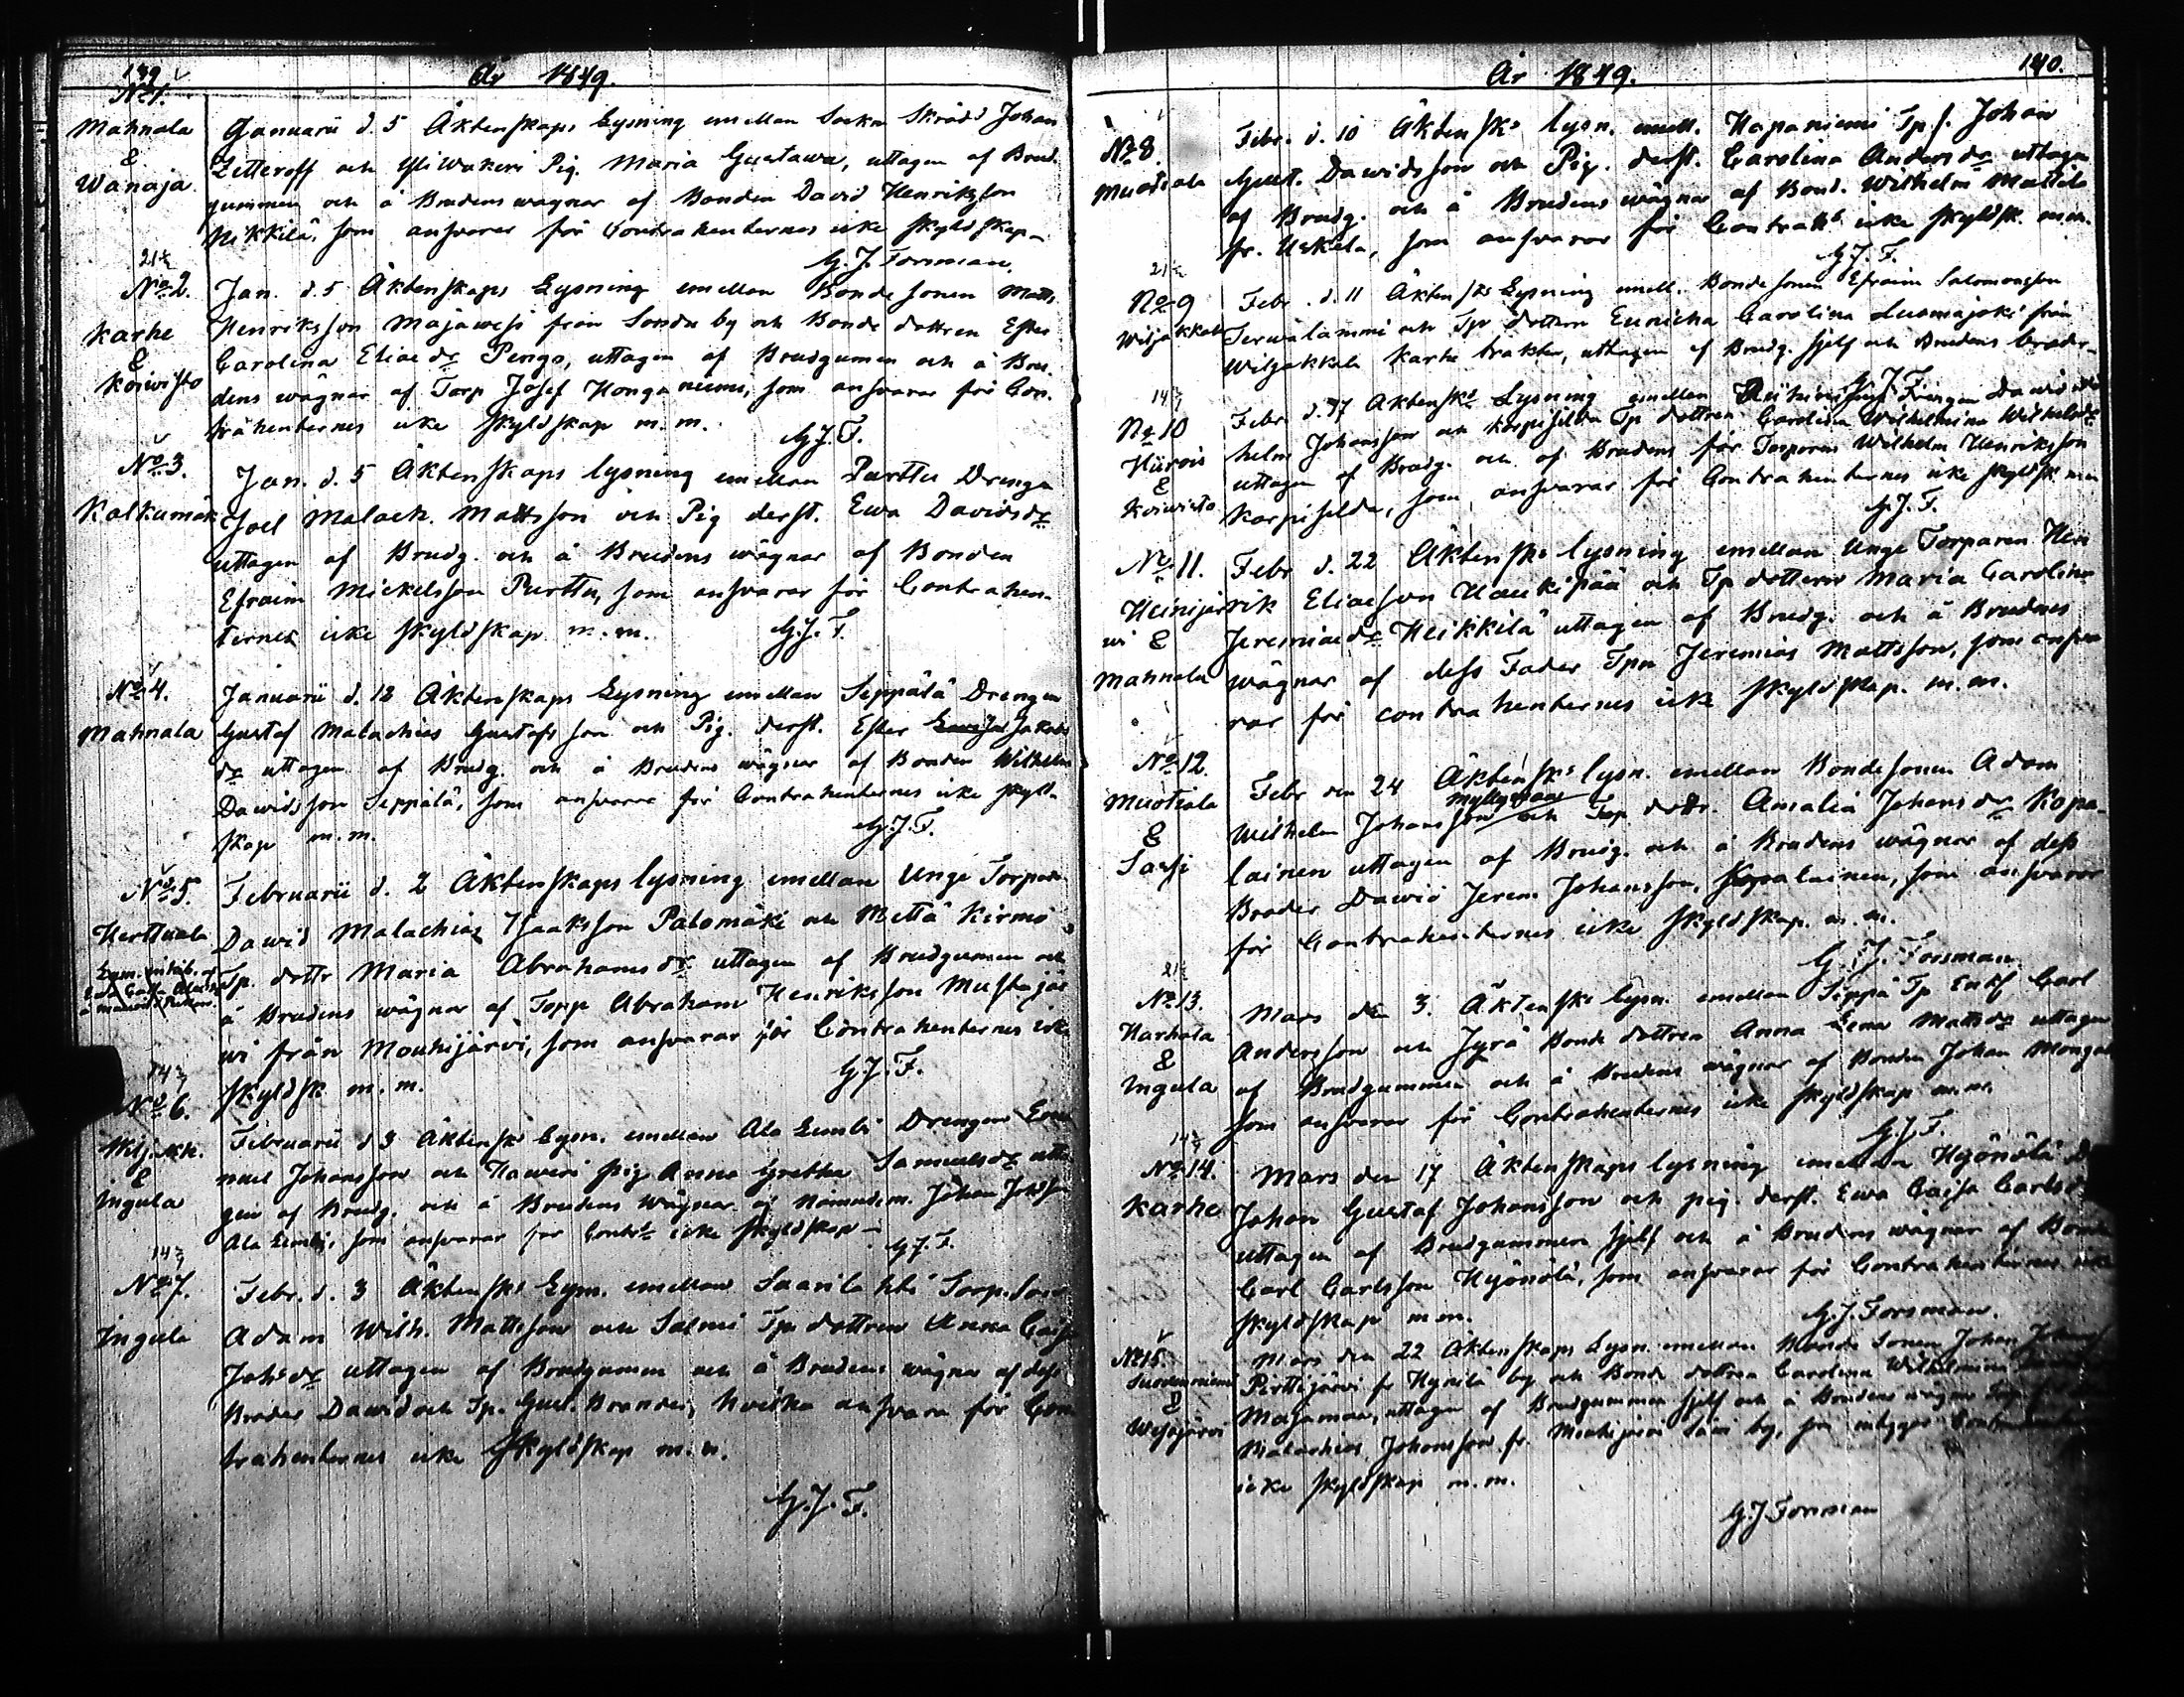 139
År 1849.
No 1.
Mahnala
&
Wanaja
Januarii d. 5 Äktenskaps Lysning emellan Sockn Skrädd Johan
Zitteroff och Yliwakeri Pig. Maria Gustawa, uttagen af Brud-
gummen och å Brudens wägnar af Bonden David Henriksson
Nikkilä, som ansvarar för Contrahenternes icke skyldskap
G. J. Forsman.
No 2.
Karhe
&
Koiwisto
Jan. d. 5 Äktenskaps Lysning emellan Bonde sonen Matts
Henriksson Majawesi från Sonda by och Bonde dottren Ester
Carolina Eliae dr Pengo, uttagen af Brudgumen och å Bru-
dens wägnar af Torp Josef Honganiemi, som ansvarar för Con-
trahenternes icke skyldskap m. m.
G. J. F.
No 3.
Kalkumäk
Jan. d. 5 Äktenskaps lysning emellan Purttu Drengen
Joel Malach. Mattsson och Pig derst. Ewa Davidsdr
uttagen af Brudg. och å Brudens wägnar af Bonden
Efraim Mickelsson Purttu, som ansvarar för Contrahen-
ternes icke skyldskap m. m.
G. J. F.
No 4.
Mahnala
Januarii d. 12 Äktenskaps Lysning emellan Seppälä Drengen
Gustaf Malachias Gustafsson och Pig. derst. Ester Jakobs
dr uttagen af Brudg. och å Brudens wägnar af Bonden Wilhelm
Davidsson Seppälä, som ansvarar för Contrahenternes icke skyld-
skap m. m.
G. J. F.
No 5.
Herttuala
Februarii d. 2 Äktenskaps lysning emellan Unge Torparen
Dawid Malachias Isaksson Palomäki och Mettä Kirmo
Tp. dottr Maria Abrahamsdr uttagen af Brudgummen och
å Brudens wägnar af Torpp Abraham Henriksson Mustajär-
wi från Mouhijärvi, som ansvarar för Contrahenternes icke
skyldsk m. m.
G. J. F.
14/2
No 6.
Wilj.kk.
&
Ingula
Februarii d 3 Äktensks Lysn. emellan Ala Lembi Drengen Ema-
nuel Johansson och Haweri pig Anna Gretha Samuelsdr utta-
gen af Brudg. och å Brudens wägnar af Nämndem. Johan Johsson
Ala Lembi, som ansvarar för Contrt icke skyldskap
G. J. F.
14/2
No 7.
Ingula
Febr. d. 3 Äktensks Lysn. emellan Saarilahti Torp. Son
Adam Wilh. Mattsson och Salmi Tp. dottren Anna Caisa
Johsdr uttagen af Brudgumen och å Brudens wägnar af dess
Broder Dawid och Tp. Gust. Brander, hvilka ansvara för Con-
trahenternes icke Skyldskap m. m.
G. J. F.
År 1849.
140.
No 8.
Muotiala
Febr. d. 10 Äktensks lysn. emell. Haponiemi Tp. s. Johan
Gust. Davidsson och Pig. derst. Carolina Andersdr uttagen
af Brudg. och å Brudens wägnar af Bond. Wilhelm Mattila
fr. Uskela, som ansvarar för Contrahts icke skyldsk. m.m.
G. J. F.
No 9
Wiljakkala
Febr. d. 11 Äktensks Lysning emell. Bonde sonen Efraim Salomonsson
Terwalammi och Tpr dottern Eunicka Carolina Luomajoki från
Wiljakkala Karhe trakten, uttagen af Brudg. sjelf och Brudens broder
G. J. F.
No 10
Hiirois
&
Koiwisto
Febr d. 17 Äktensks Lysning emellan Drängen Dawid Wil-
helm Johansson och Korpisilda Tp dottren Carolina Wilhelmina Wilhelmsdr
uttagen af Brudg. och af Brudens far Torparen Wilhelm Henriksson
Korpisilda, som ansvarar för Contrahenternes icke skyldsk mm
G. J. F.
No 11.
Heinijär-
wi &
Mahnala
Febr d. 22 Äktensks lysning emellan Unge Torparen Hen-
rik Eliaesson Haukipää och Tp dotteren Maria Carolina
Jeremiae dr Heikkilä uttagen af Brudg. och å Brudens
wägnar af dess Fader Tpn Jeremias Mattsson, som ansva-
rar för contrahenternes icke skyldskap. m. m.
No 12.
Muotiala
&
Sarsi
Febr den 24 Äktensks lysn. emellan Bondesonen Adam
Wilhelm Johansson och Torp dottr. Amalia Johans dr Kopa-
lainen uttagen af Brudg. och å Brudens wägnar af dess
Broder Dawid Jerem Johansson, Kopalainen, som ansvarar
för Contrahenternes icke skyldskap. m. m.
G. J. Forsman
No 13.
Harhala
&
Ingula
Mars den 3. Äktensks Lysn. emellan Seppä Tp Enkl Carl
Andersson och Jyrä Bonde dottren Anna Lena Mattsdr uttagen
af Brudgummen och å Brudens wägnar af Bonden Johan
som ansvarar för Contrahenternes icke skyldskap m.m.
G. J. F.
No 14.
Karhe
Mars den 17 Äktenskaps lysning emellan Hyönölä
Johan Gustaf Johansson och pig. derst. Ewa Caisa Carlsdr
uttagen af Brudgummen sjelf och å Brudens wägnar af Bonden
Carl Carlsson Hyönölä, som ansvarar för Contrahenternes icke
skyldskap m m.
G. J. Forsman.
No 15.
Suodenniemi
&
Wesajärvi
Mars den 22 Äktenskaps Lysn. emellan Bonde Sonen Johan
Pirttijärvi fr Kynilä by och Bonde dottren Carolina Wilhelmina
Majamaa, uttagen af Brudgummen sjelf och å Brudens wägnar
Malachias Johansson fr. Mouhijärvi by, som
icke skyldskap m. m.
G. J. Forsman